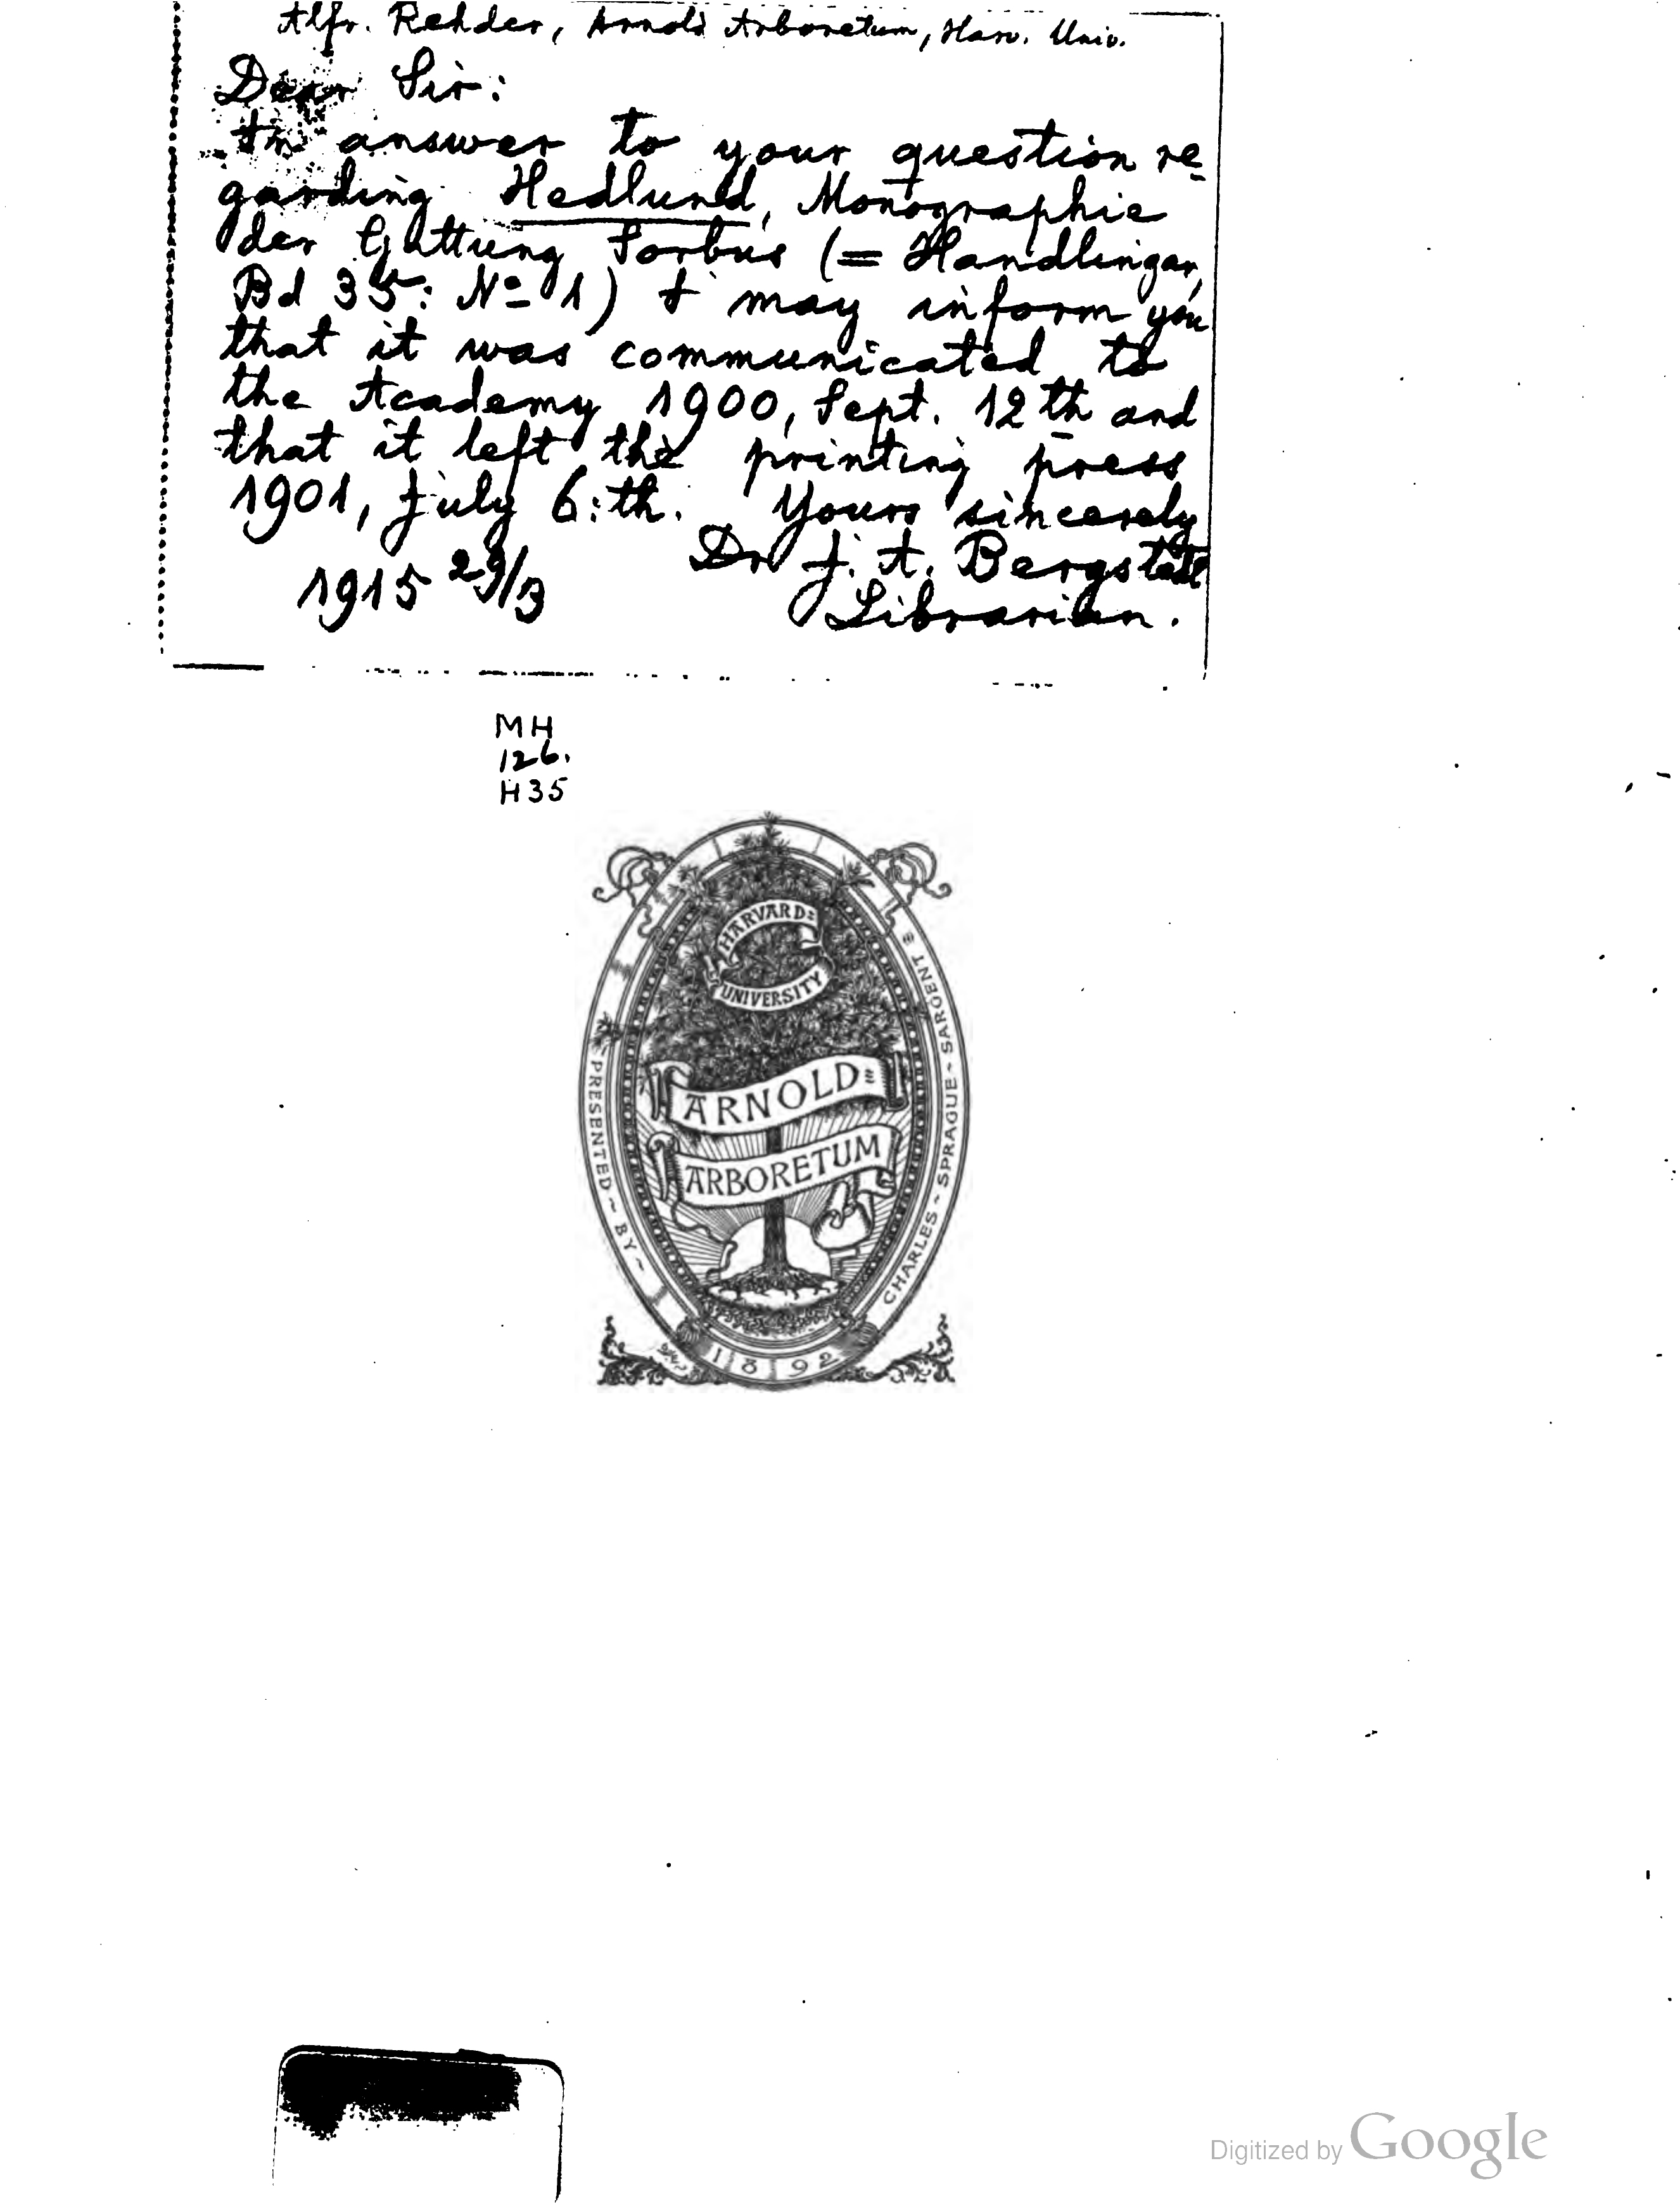 Alfr. Rehder, Arnold Arboretum, Harv. Univ.
Dear Sir:
In answer to your question re
garding Hedlund, Monographie
der Gattung Sorbus (= Handlingar,
Bd 35: Nº 1) I may inform you
that it was communicated to
the Academy 1900, Sept. 12th and
that it left the printing press
1901, July 6:th. Yours sincerely
1915 29/3 Dr J. A. Bergstedt
Librarian.
MH
126.
H35
HARVARD
UNIVERSITY
ARNOLD
ARBORETUM
PRESENTED ~ BY ~
CHARLES ~ SPRAGUE ~ SARGENT
1892
Digitized by Google